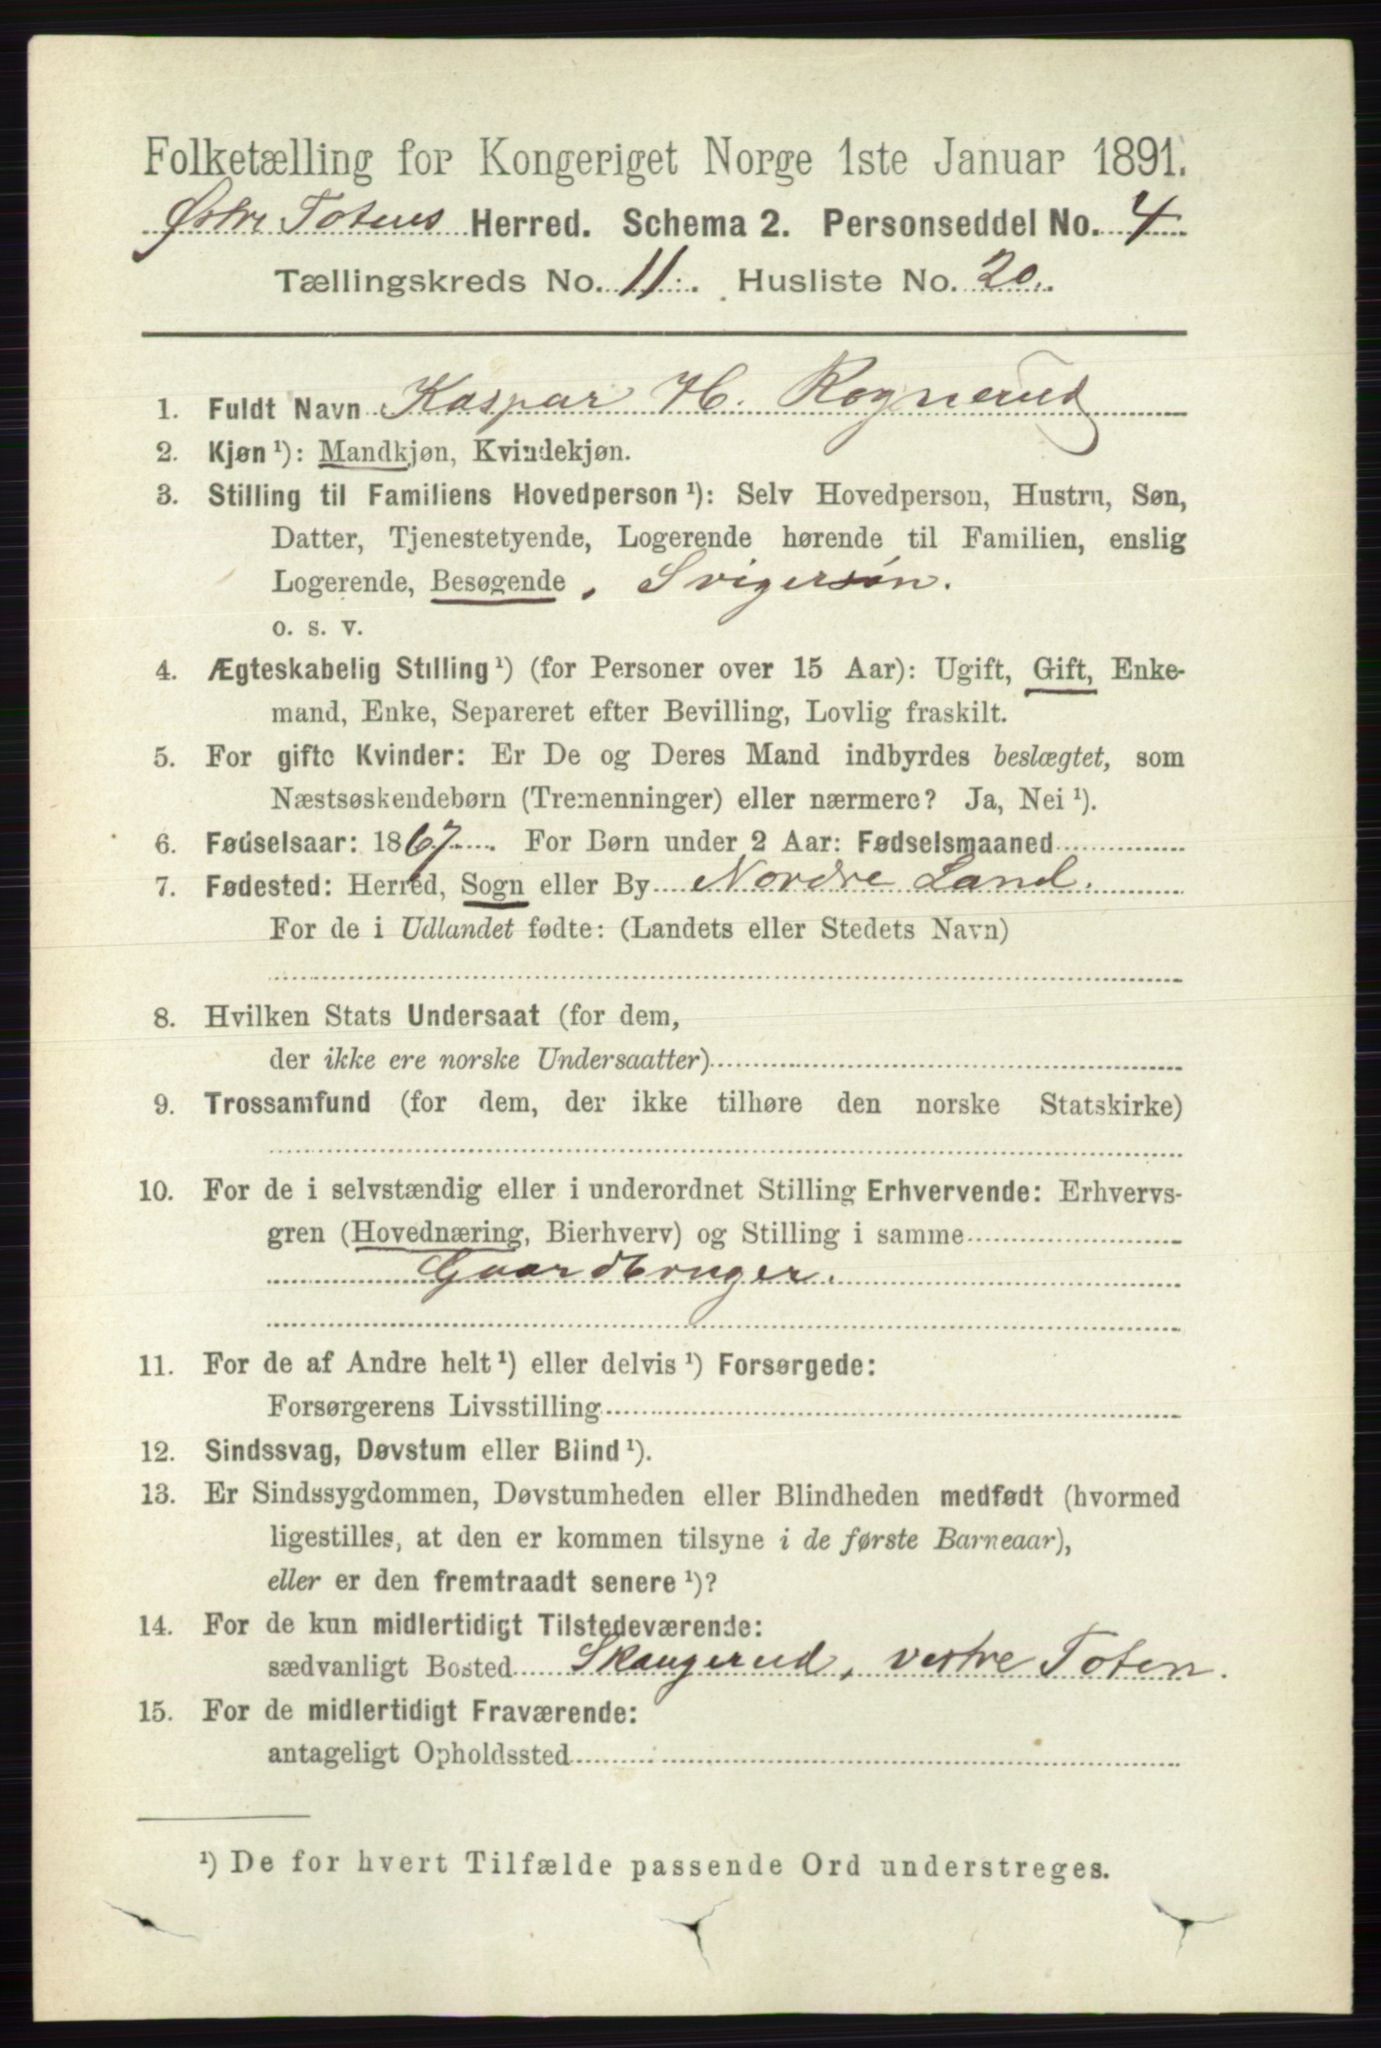 Folketælling for Kongeriget Norge 1ste Januar 1891.
Østre Totens Herred. Schema 2. Personseddel No. 4
Tællingskreds No. 11. Husliste No. 20.
1. Fuldt Navn Kaspar H. Rognerud
2. Kjøn ¹): Mandkjøn, Kvindekjøn.
3. Stilling til Familiens Hovedperson ¹): Selv Hovedperson, Hustru, Søn,
Datter, Tjenestetyende, Logerende hørende til Familien, enslig
Logerende, Besøgende, Svigersøn.
o. s. v.
4. Ægteskabelig Stilling ¹) (for Personer over 15 Aar): Ugift, Gift, Enke-
mand, Enke, Separeret efter Bevilling, Lovlig fraskilt.
5. For gifte Kvinder: Er De og Deres Mand indbyrdes beslægtet, som
Næstsøskendebørn (Tremenninger) eller nærmere? Ja, Nei ¹).
6. Fødselsaar: 1867. For Børn under 2 Aar: Fødselsmaaned
7. Fødested: Herred, Sogn eller By Nordre Land.
For de i Udlandet fødte: (Landets eller Stedets Navn)
8. Hvilken Stats Undersaat (for dem,
der ikke ere norske Undersaatter)
9. Trossamfund (for dem, der ikke tilhøre den norske Statskirke)
10. For de i selvstændig eller i underordnet Stilling Erhvervende: Erhvervs-
gren (Hovednæring, Bierhverv) og Stilling i samme
Gaardbruger.
11. For de af Andre helt ¹) eller delvis ¹) Forsørgede:
Forsørgerens Livsstilling
12. Sindssvag, Døvstum eller Blind ¹).
13. Er Sindssygdommen, Døvstumheden eller Blindheden medfødt (hvormed
ligestilles, at den er kommen tilsyne i de første Barneaar),
eller er den fremtraadt senere ¹)?
14. For de kun midlertidigt Tilstedeværende:
sædvanligt Bosted Skaugerud, vestre Toten.
15. For de midlertidigt Fraværende:
antageligt Opholdssted
¹) De for hvert Tilfælde passende Ord understreges.